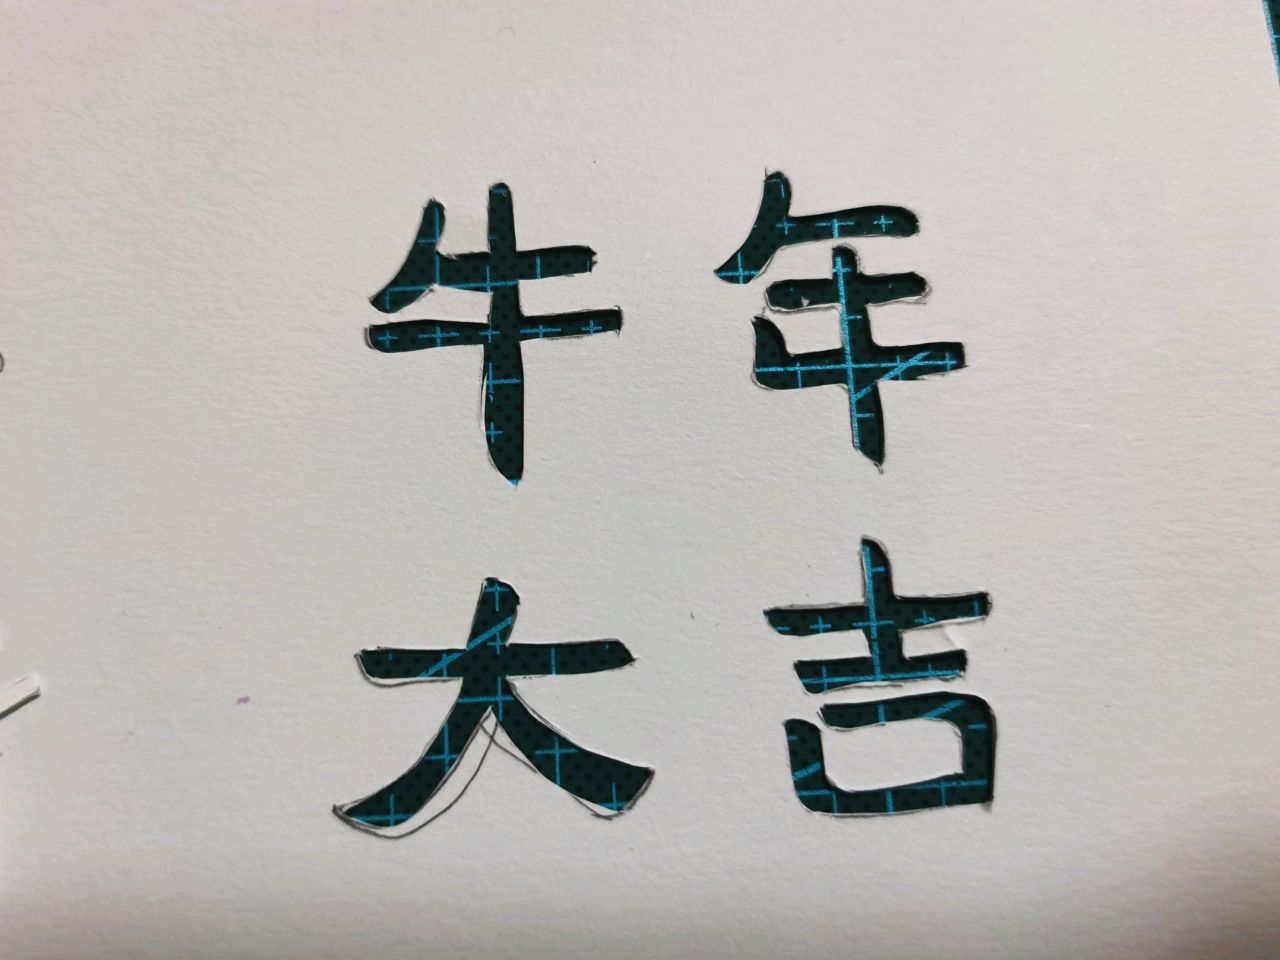 牛年
大吉